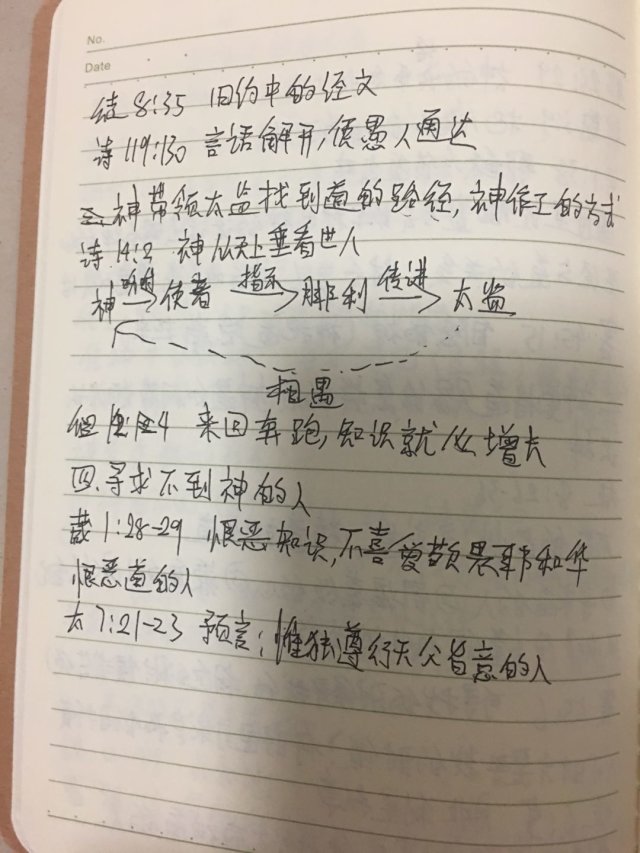 No.
Date
徒 8:35 旧约中的经文
诗 119:130 言语解开,使愚人通达
三、神带领太监找到道的路径,神作工的方式
诗 14:2 神从天上垂看世人
吩咐 指示 传进
神 → 使者 → 腓利 → 太监
相遇
但 12:4 来回奔跑,知识就必增长
四、寻求不到神的人
箴 1:28-29 恨恶知识,不喜爱敬畏耶和华
恨恶道的人
太 7:21-23 预言:惟独遵行天父旨意的人